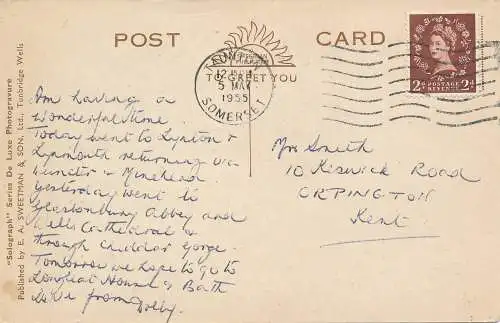 POST CARD
TO GREET YOU
TAUNTON
5 MAY
1955
SOMERSET
POSTAGE REVENUE
2D 2D
"Solograph" Series De Luxe Photogravure
Published by E. A. SWEETMAN & SON, Ltd., Tunbridge Wells
Am having a
wonderful time.
Today went to Lynton &
Lynmouth returning via
Dunster & Minehead
Yesterday went to
Glastonbury Abbey and
Wells Cathedral &
through Cheddar Gorge.
Tomorrow we hope to go to
Longleat House & Bath
Love from Dolly.
Mrs Smith
10 Keswick Road
ORPINGTON
Kent